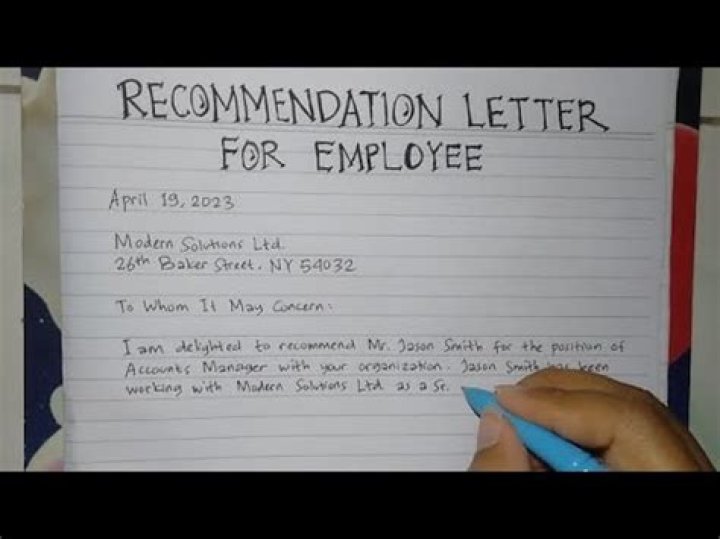 RECOMMENDATION LETTER
FOR EMPLOYEE
April 19, 2023
Modern Solutions Ltd.
26th Baker Street, NY 54032
To Whom It May Concern:
I am delighted to recommend Mr. Jason Smith for the position of
Accounts Manager with your organization. Jason Smith has been
working with Modern Solutions Ltd. as a Sr.